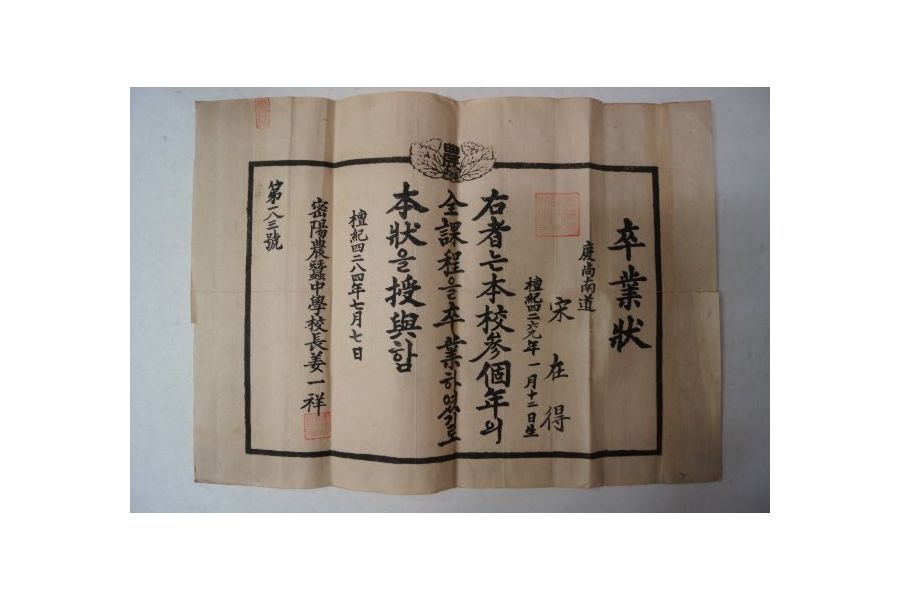 卒業狀
慶尙南道
宋在得
檀紀四二六九年一月十二日生
右者는本校參個年의
全課程을卒業하였기로
本狀을授與함
檀紀四二八四年七月七日
密陽農蠶中學校長姜一祥
第一八三號